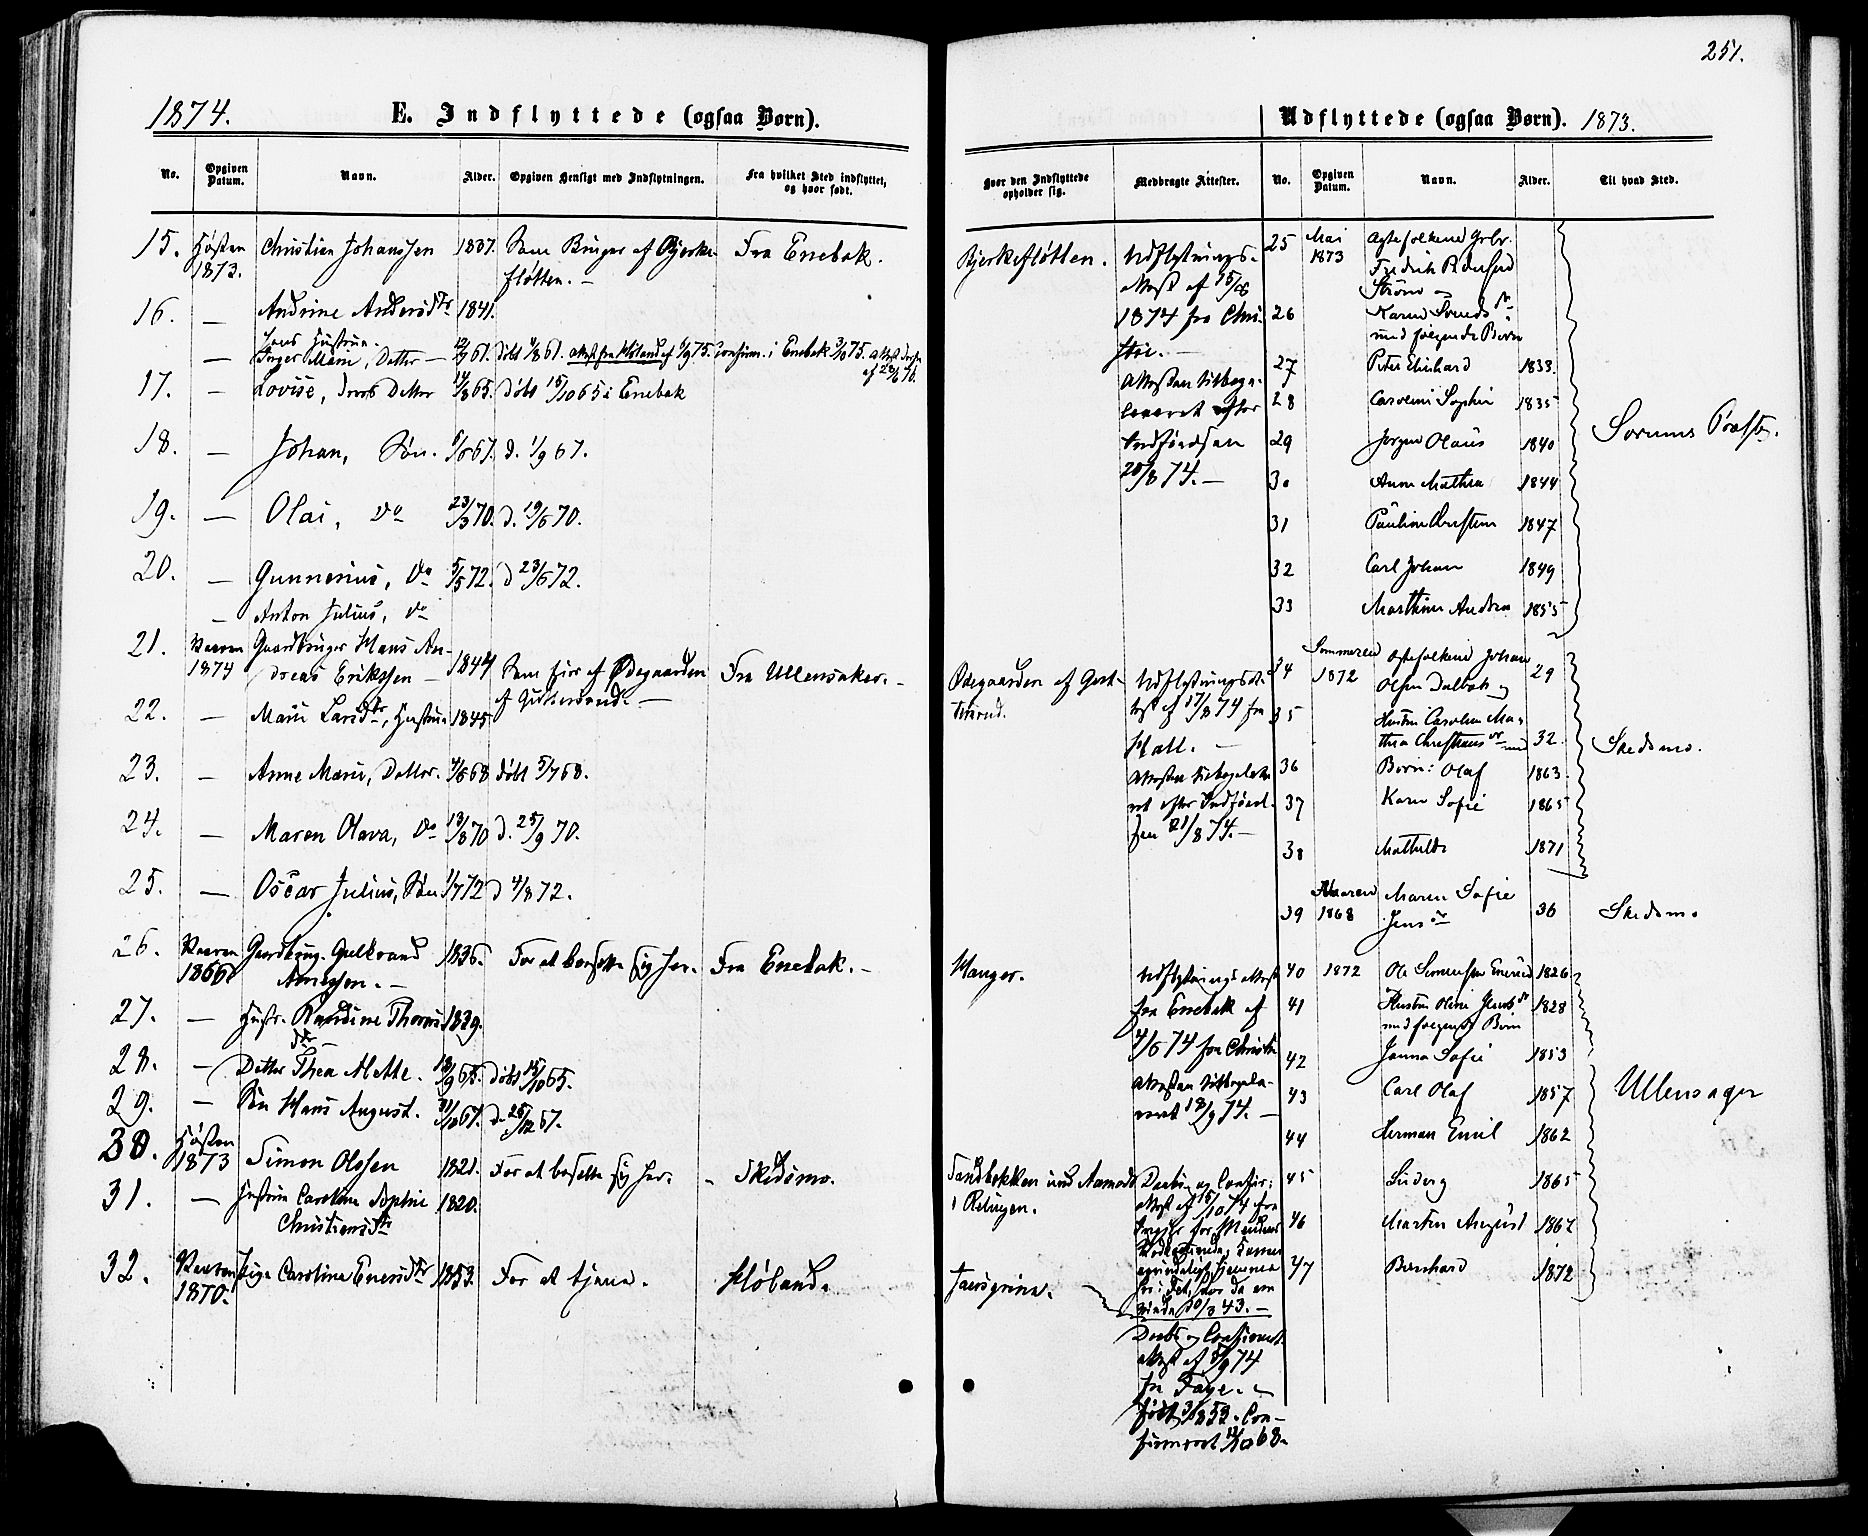 251.
1874. E. Indflyttede (ogsaa Børn).
Udflyttede (ogsaa Børn). 1873.
No. Opgiven Datum. Navn. Alder. Opgiven Hensigt med Indflytningen. Fra hvilket Sted indflyttet, og hvor født.
Hvor den Indflyttede opholder sig. Medbragte Attester. No. Opgiven Datum. Navn. Alder. Til hvad Sted.
15. Høsten 1873. Christian Johanssen 1837. Som Bruger af Bjerke- Fra Enebak.
fløtten. —
16. — Andrine Andersdtr 1841.
hans Hustru.
— Inger Marie, Datter —
17. — Lovise, deres Datter 14/8 65. Døbt 15/10 65 i Enebak
18. — Johan, Søn. d. 1/9 67.
19. — Olai, do 23/3 70. d. 19/6 70.
20. — Gunnerius, do 5/5 72. d 23/6 72.
— Anton Julius, do
21. Vaaren 1874 Gaardbruger Hans An-
dreas Erikssen — 1844 Som Eier af Ødegaarden Fra Ullensaker. —
22. — Marie Larsdtr, Hustru 1845
23. — Anne Marie, Datter. 4/6 68 døbt 5/7 68.
24. — Maren Olava, do 13/8 70 d. 25/9 70.
25. — Oscar Julius, Søn 1/7 72 d 4/8 72.
26. Vaaren 1866 Gaardbrug. Gulbrand 1836. For at bosætte sig her. Fra Enebak. —
Arnessen. —
27. — Hustr. Randine Thores 1839.
dtr —
28. — Datter Thea Mette. døbt 15/10 65.
29. — Søn Hans August. d. 26/12 67.
30. Høsten 1873 Simen Olssen 1821. For at bosætte sig her. - Skedsmo.
31. — Hustru Caroline Sophie 1820.
Christiansdtr
32. Vaaren 1870. Pige Caroline Enersdtr 1853. For at tjene. Høland.
Bjerkefløtten. Udflytnings-
Attest af 15/8
1874 fra Chri-
stie. —
Attesten tilbage-
leveret efter
Indførelsen
28/8 74. —
Ødegaarden af Gut-
tersrud. Udflytningsat-
test af 17/8 74 fra
Hall. —
Attesten tilbageleve-
ret efter Indførel-
sen 21/8 74. —
Hanger. Udflytnings Attest
fra Enebak af
4/6 74 fra Christie
Attesten tilbagele-
veret 18/9 74. —
Sandbekken ved Aamodt
i Rælingen. Daabs og Confir:
Attest af 15/10 74 fra
Daabs og Confirmat.
Attest af 5/9 74
fra Faye. —
født 3/1 53. Con-
firmeret 11/10 68.
25 Mai 1873 Ægtefolkene Gbr.
Fredrik Pedersen
Strøm og
26 Karen Svendsdtr
med følgende Børn
27 Peter Edvhard 1833.
28 Caroline Sophie 1835
29 Jørgen Olaus 1840
30 Anne Mathea 1844
31 Pauline Kirstine 1847
32 Carl Johan 1849
33 Marthine Andrea 1855
Sørums Præstg.
34 Sommeren 1872 Ægtefolkene Johan
Olsen Dalbak og 29
35 Hustru Caroline Ma-
thea Christians dtr med 32.
36 Børn: Olaf 1863.
37 Karen Sofie 1865
38 Mathilde 1871
Skedsmo.
39 Vaaren 1868 Maren Sofie
Jens dtr 36 Skedsmo
40 1872 Ole Simensen Enerud 1826
41 Hustru Oline Jensdtr 1828
med følgende Børn
42 Janna Sofie 1853
43 Carl Olaf 1857
44 Herman Emil 1862
45 Ludvig 1865
46 Martin August 1867
47 Bernhard 1872
Ullensager